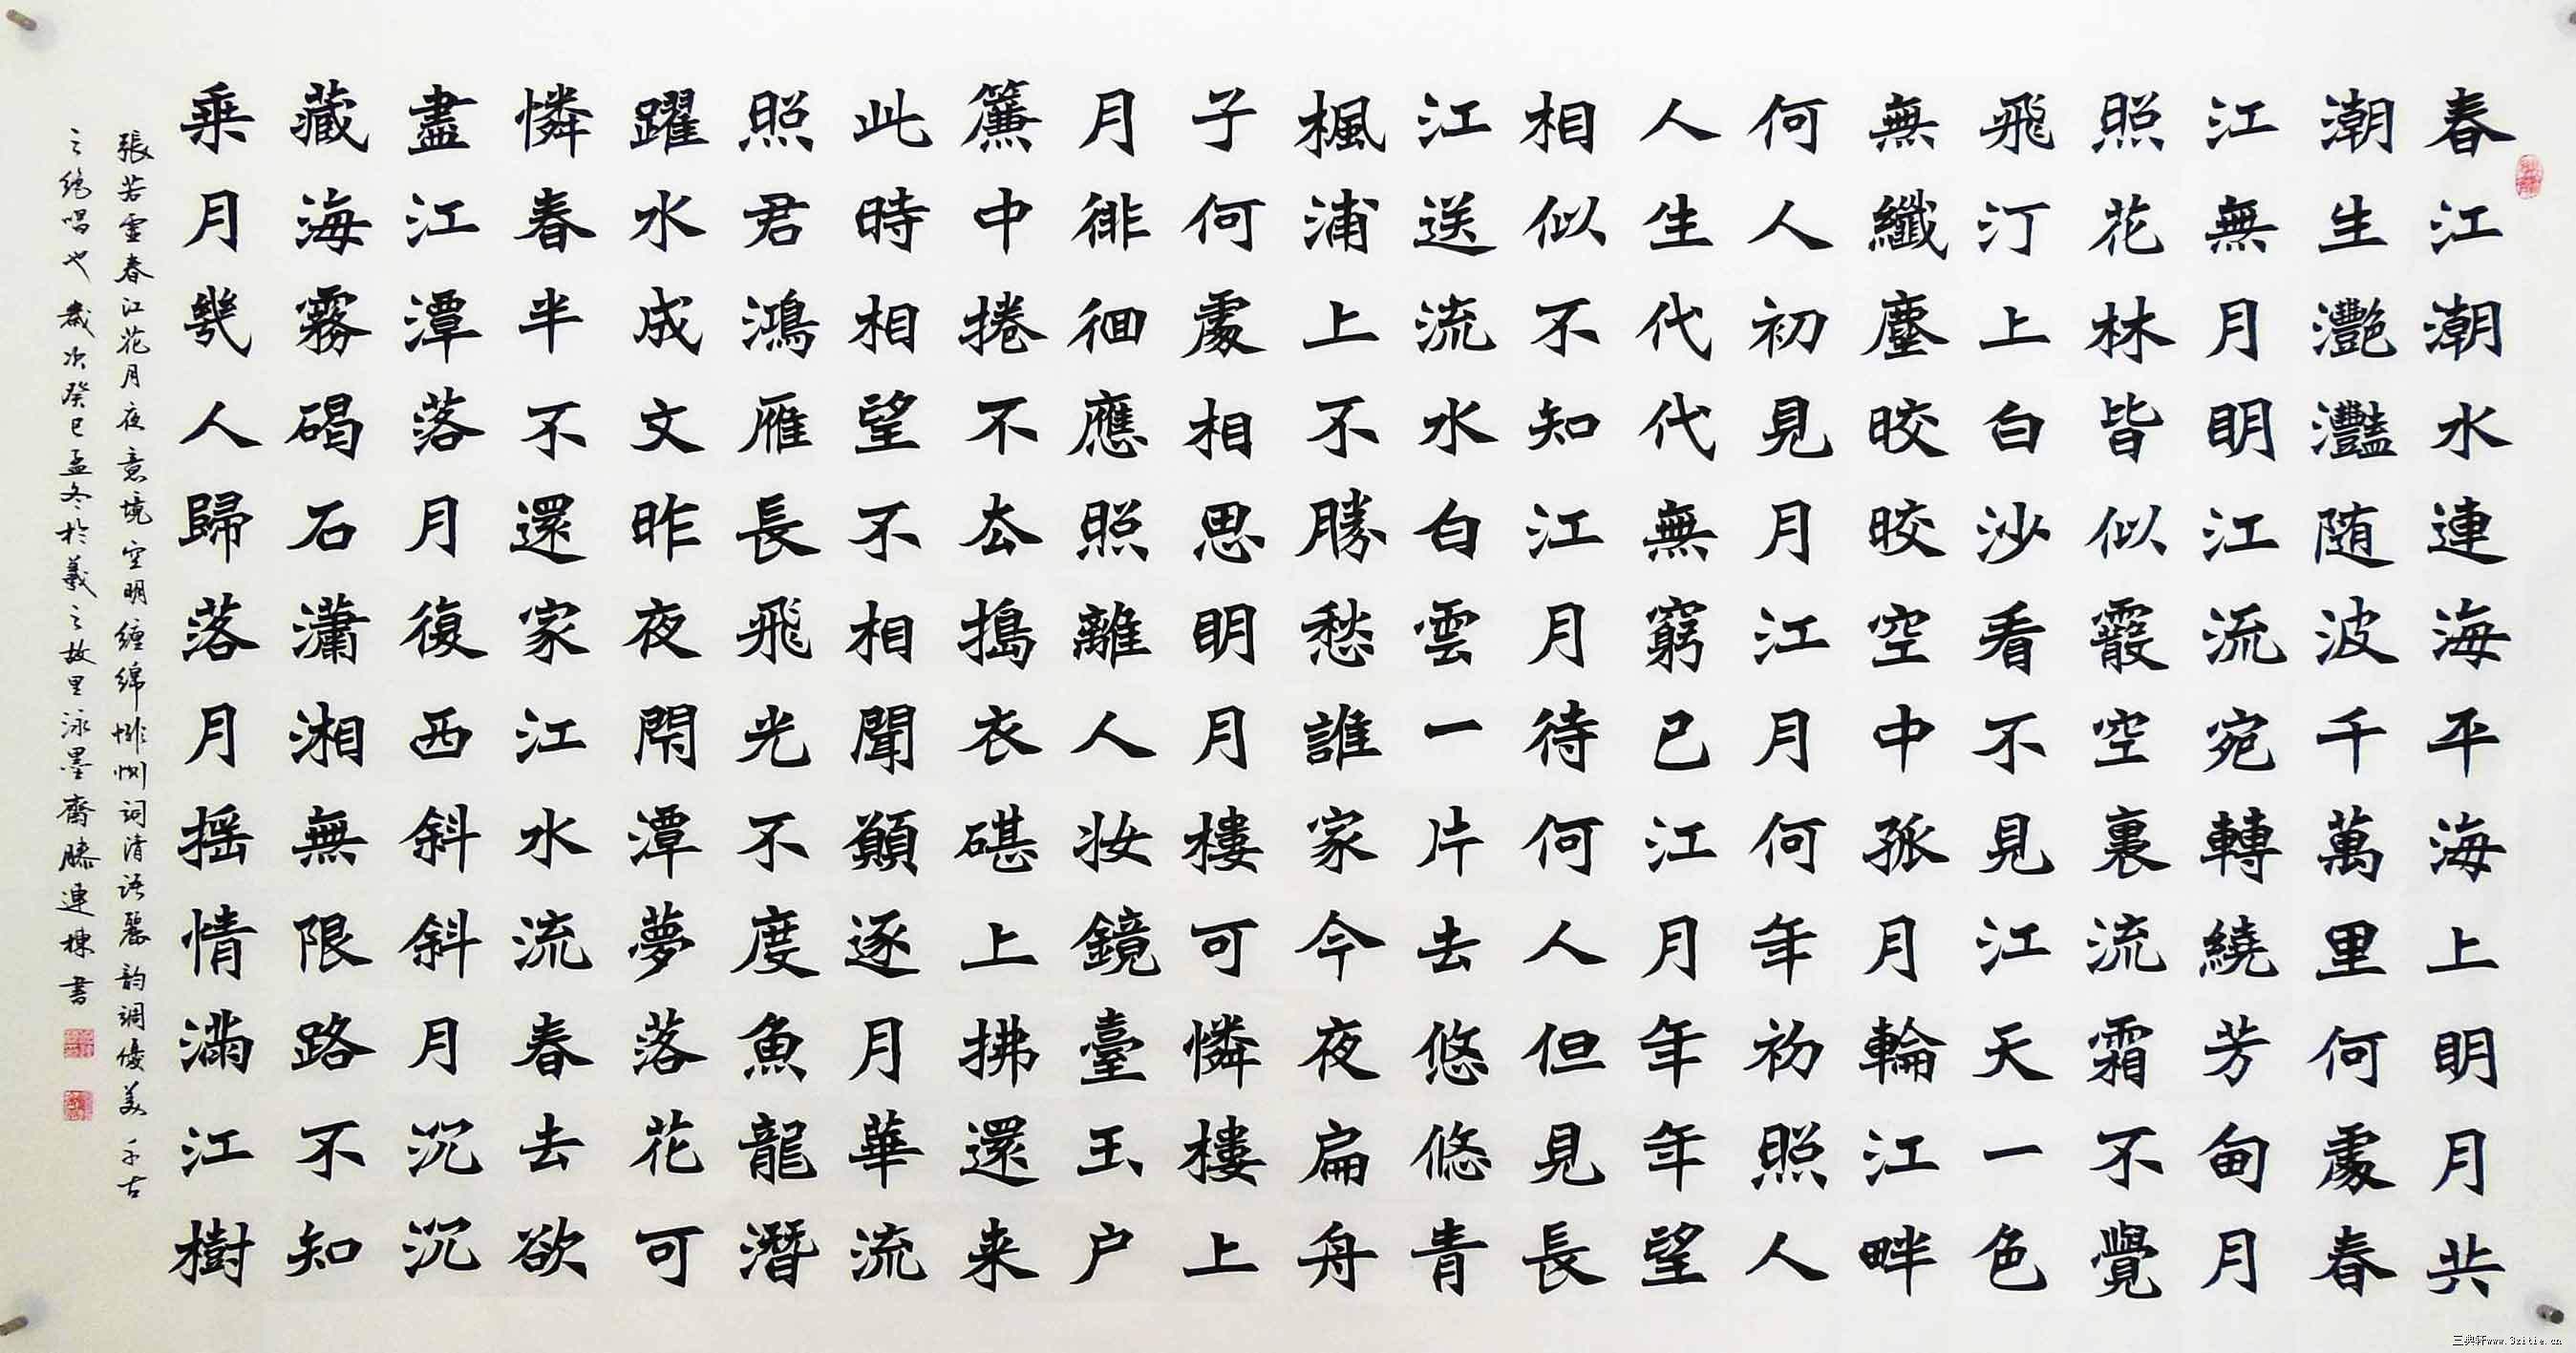 春江潮水連海平海上明月共
潮生灧灩随波千萬里何處春
江無月明江流宛轉繞芳甸月
照花林皆似霰空裏流霜不覺
飛汀上白沙看不見江天一色
無纖塵晈晈空中孤月輪江畔
何人初見月江月何年初照人
人生代代無窮已江月年年望
相似不知江月待何人但見長
江送流水白雲一片去悠悠青
楓浦上不勝愁誰家今夜扁舟
子何處相思明月樓可憐樓上
月徘徊應照離人妆鏡臺玉户
簾中捲不去搗衣碪上拂還来
此時相望不相聞願逐月華流
照君鴻雁長飛光不度魚龍潛
躍水成文昨夜閒潭夢落花可
憐春半不還家江水流春去欲
盡江潭落月復西斜斜月沉沉
藏海霧碣石瀟湘無限路不知
乘月幾人歸落月摇情滿江樹
張若虚春江花月夜意境空明缠綿悱恻词清语麗韵调優美千古
之絶唱也歲次癸巳孟冬於羲之故里泳墨齋滕連棟書
三典轩www.3zitie.cn